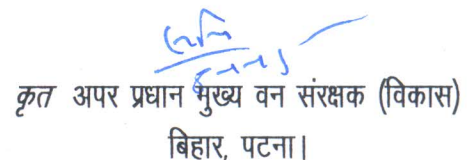 कृत अपर प्रधान मुख्य वन संरक्षक (विकास)
बिहार, पटना।